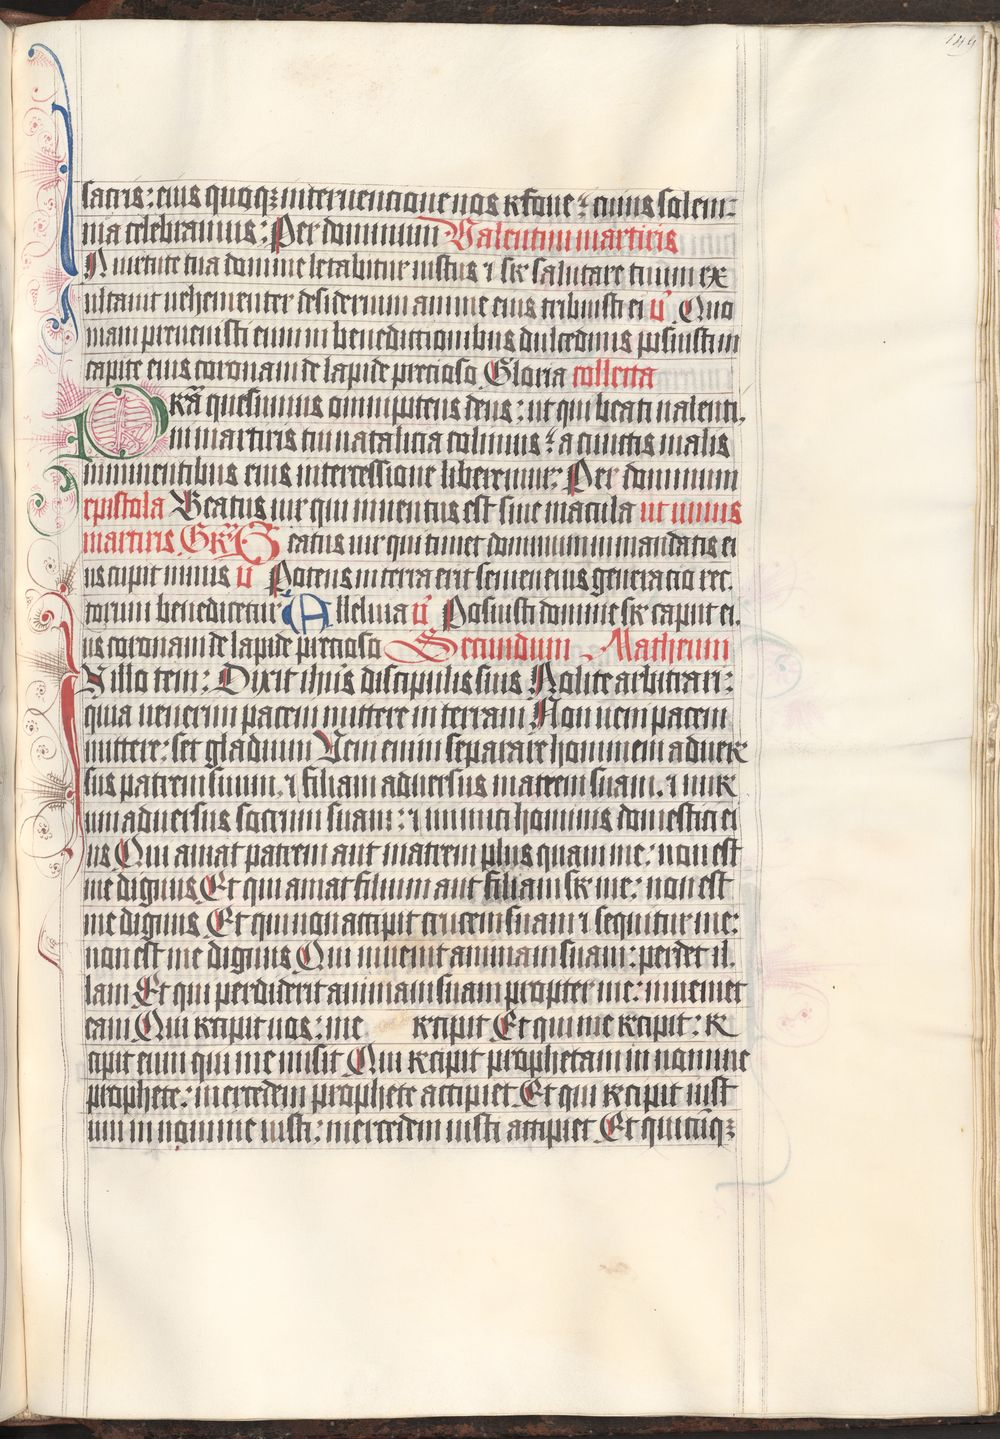 149
sacris: eius quoqꝫ interuencione nos refoue: cuius solem-
nia celebramus: Per dominum Valentini martiris
In uirtute tua domine letabitur iustus ⁊ sr̄ salutare tuum ex
ultauit uehementer desiderium anime eius tribuisti ei v̄ Quo
niam preuenisti eum in benedictionibus dulcedinis posuisti in
capite eius coronam de lapide precioso Gloria collecta
Pr̄a quesumus omnipotens deus: ut qui beati ualenti,
ni martiris tui natalicia colimus: a cunctis malis
imminentibus eius intercessione liberemur: Per dominum
epistola Beatus uir qui inuentus est sine macula ut unius
martiris Gr̄ Beatus uir qui timet dominum in mandatis ei
us cupit nimis v̄ Potens in terra erit semen eius generacio rec,
torum benedicetur Alleluia v̄ Posuisti domine sr̄ caput ei,
us coronam de lapide precioso Secundum Matheum
In illo tem: Dixit ihūs discipulis suis Nolite arbitrari:
quia uenerim pacem mittere in terram Non ueni pacem
mittere: set gladium Veni enim separare hominem aduer
sus patrem suum, ⁊ filiam aduersus matrem suam, ⁊ nur
um aduersus socrum suam: ⁊ inimici hominis domestici ei
us Qui amat patrem aut matrem plus quam me: non est
me dignus Et qui amat filium aut filiam sr̄ me: non est
me dignus Et qui non accipit crucem suam ⁊ sequitur me:
non est me dignus Qui inuenit animam suam: perdet il,
lam Et qui perdiderit animam suam propter me: inueniet
eam Qui recipit uos: me recipit Et qui me recipit: re
cipit eum qui me misit Qui recipit prophetam in nomine
prophete: mercedem prophete accipiet Et qui recipit iust
um in nomine iusti: mercedem iusti accipiet Et quicūqꝫ